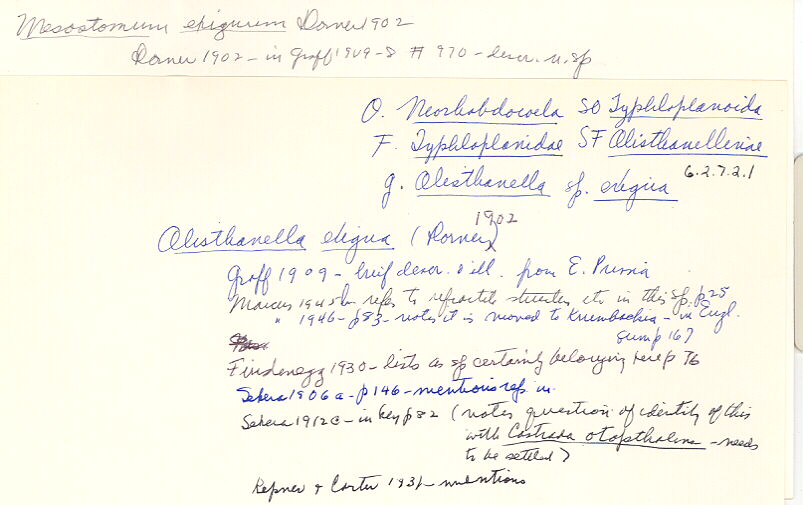 Mesostomum exiguum Dorner 1902
Dorner 1902 - in Graff 1909 - S # 970 - descr. n. sp.
O. Neorhabdocoela SO Typhloplanoida
F. Typhloplanidae SF Olisthanellinae
g. Olisthanella sp. exigua 6.2.7.2.1
1902
Olisthanella exigua (Dorner)
Graff 1909 - brief descr. & ill. from E. Prussia
Marcus 1945b refers to refractile structures etc in this sp. p 25
" 1946 - p 83 - notes it is moved to Krumbachia - in Engl. sum p 167
Findenegg 1930 - lists as sp certainly belonging here p 76
Sekera 1906a - p 146 - mentions ref. in
Sekera 1912c - in key p 82 (notes question of identity of this
with Castrada otophthalma - needs
to be settled)
Kepner & Carter 1931 - mentions